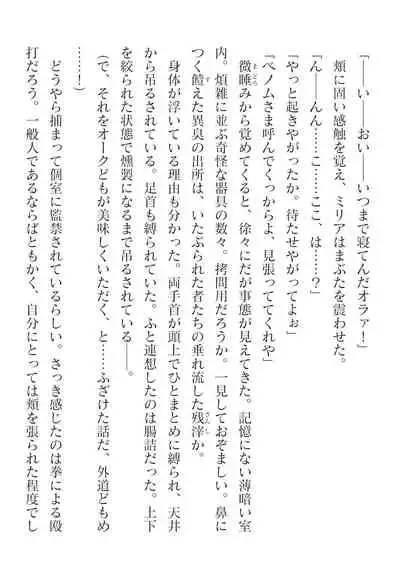 「――い――おい――いつまで寝てんだオラァ！」
頬に固い感触を覚え、ミリアはまぶたを震わせた。
「ん――んん……こ……ここ、は……？」
「やっと起きやがったか。待たせやがってよぉ」
「ベノムさま呼んでくっからよ、見張っててくれや」
微睡みから覚めてくると、徐々にだが事態が見えてきた。記憶にない薄暗い室
内。煩雑に並ぶ奇怪な器具の数々。拷問用だろうか。一見しておぞましい。鼻に
つく饐えた異臭の出所は、いたぶられた者たちの垂れ流した残滓か。
身体が浮いている理由も分かった。両手首が頭上でひとまとめに縛られ、天井
から吊るされている。足首も縛られていた。ふと連想したのは腸詰だった。上下
を絞られた状態で燻製になるまで吊るされている――。
（で、それをオークどもが美味しくいただく、と……ふざけた話だ、外道どもめ
……！）
どうやら捕まって個室に監禁されているらしい。さっき感じたのは拳による殴
打だろう。一般人であるならばともかく、自分にとっては頬を張られた程度でし